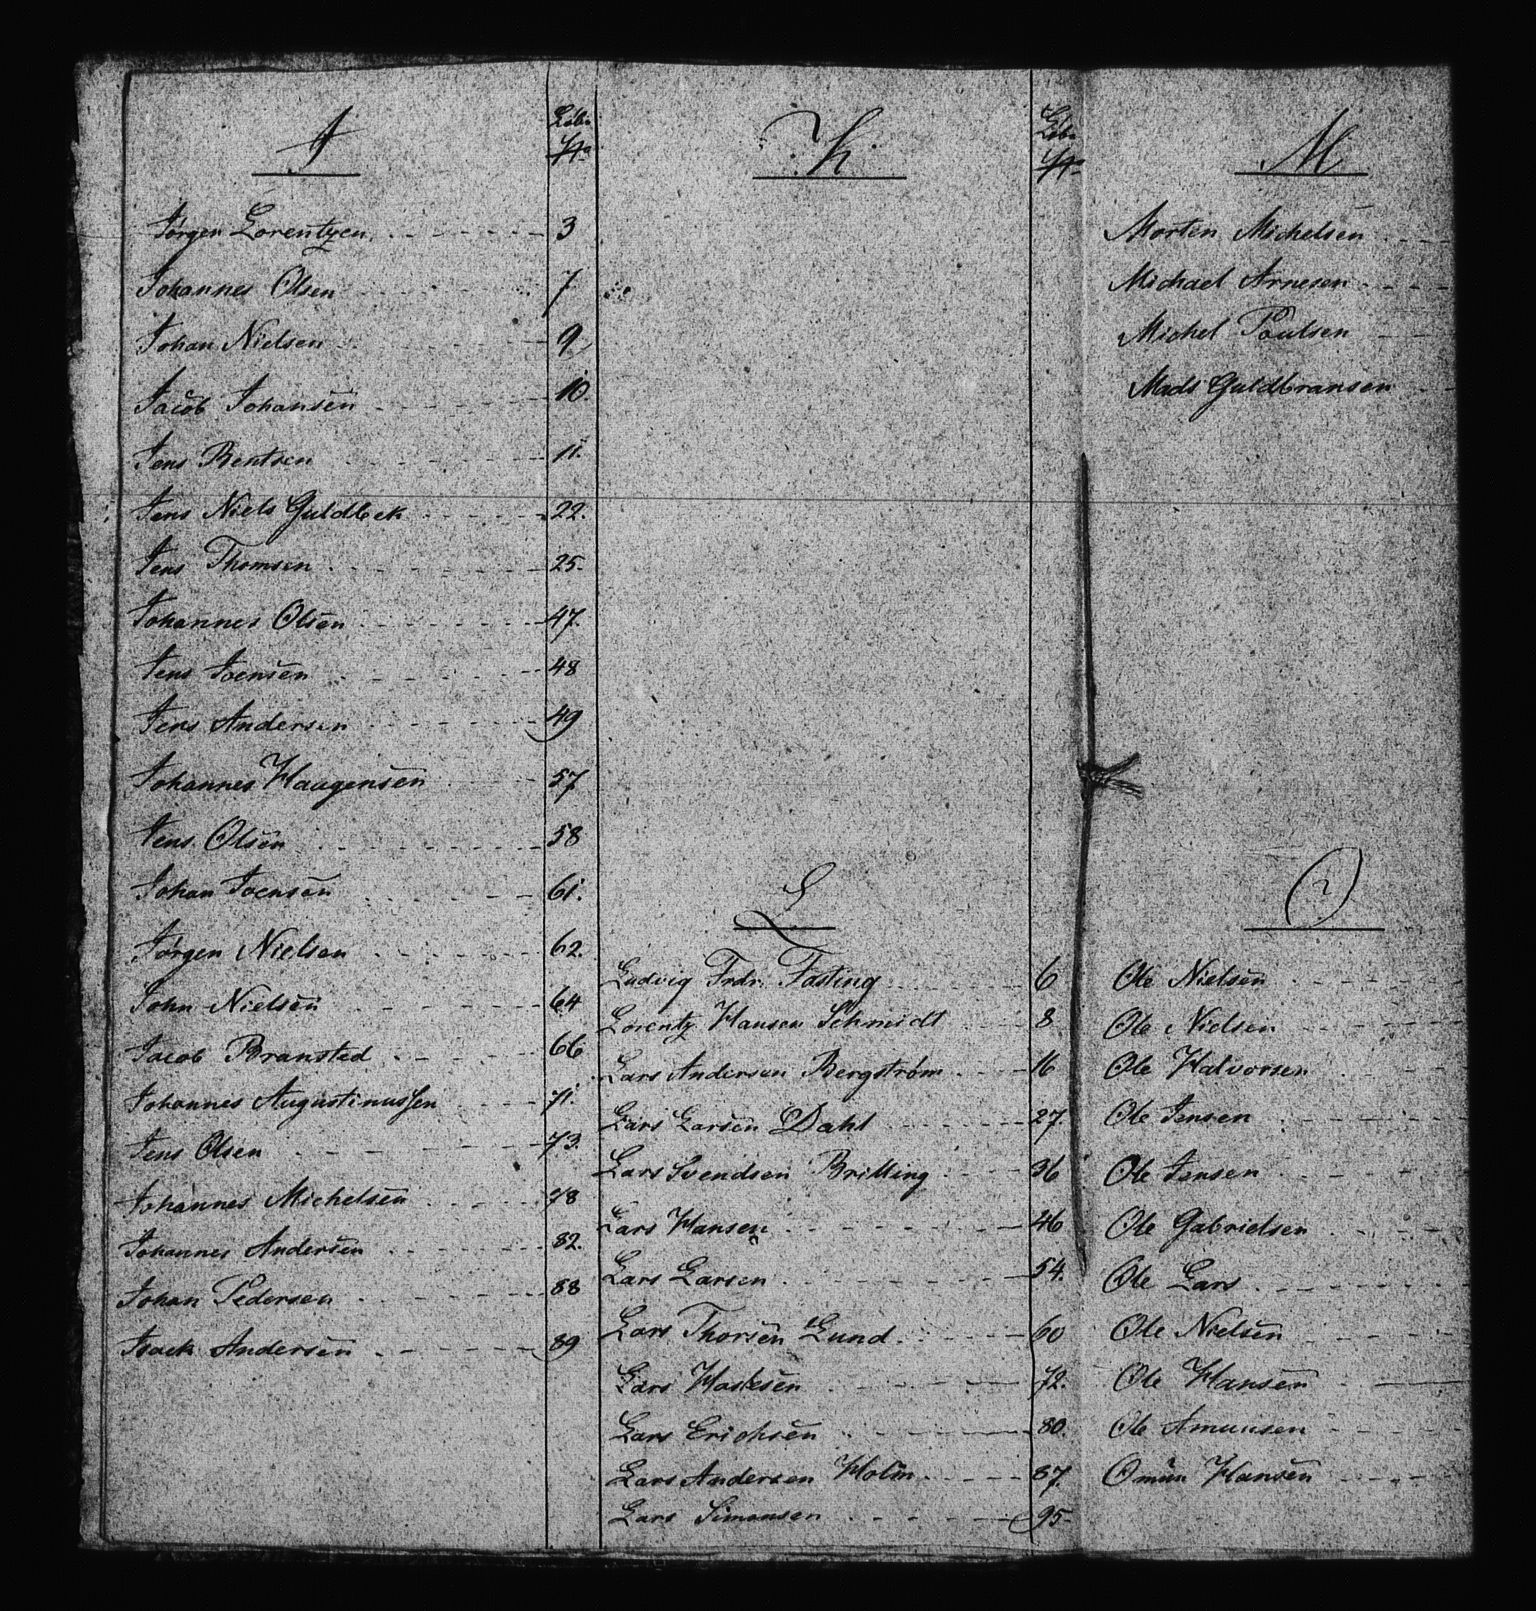 J
Lib.
No
Jörgen Lorentzen 3
Johannes Olsen 7
Johan Nielsen 9
Jacob Johansen 10.
Jens Bentsen 11.
Jens Niels Guldbek 22.
Jens Thomsen 25.
Johannes Olsen 47.
Jens Joensen 48
Jens Andersen 49
Johannes Haagensen 57
Jens Olsen 58
Johan Joensen 61.
Jørgen Nielsen 62.
John Nielsen 64
Jacob Bransted 66
Johannes Augustinussen 71.
Jens Olsen 73.
Johannes Michelsen 78
Johannes Andersen 82.
Johan Pedersen 88
Isack Andersen 89
K.
Lib.
No
L
Ludvig Frdr. Fasting 6
Lorentz Hansen Schmidt 8
Lars Andersen Bergstrøm 16
Lars Larsen Dahl 27.
Lars Svendsen Brilling 36
Lars Hansen 46
Lars Larsen 54.
Lars Thorsen Lund 60
Lars Hansen 72.
Lars Erichsen 80.
Lars Andersen Holm 87.
Lars Simonsen 95
M
Morten Michelsen
Michael Arnesen
Michel Poulsen
Mads Guldbransen
O
Ole Nielsen
Ole Nielsen
Ole Halvorsen
Ole Jensen
Ole Jensen
Ole Gabrielsen
Ole Lars
Ole Nielsen
Ole Hansen
Ole Amunsen
Omun Hansen